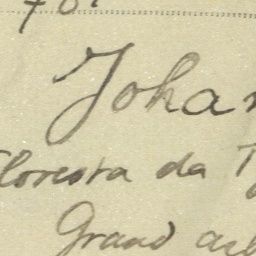 Johan
Floresta da T
Grand arb